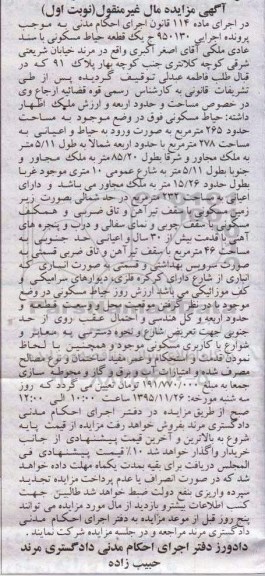 آگهی مزایده مال غیرمنقول(نوبت اول)
در اجرای ماده ۱۱۴ قانون اجرای احکام مدنی به موجب
پرونده اجرایی ۹۵۰۱۳۰ ج یک قطعه حیاط مسکونی با سند
عادی ملکی آقای اصغر آگری واقع در مرند خیابان شریعتی
شرقی کوچه کلانتری جنب کوچه بهار پلاک ۹۱ که در
قبال طلب فاطمه عبدلی توقیف گردیده پس از طی
تشریفات قانونی به کارشناس رسمی قوه قضائیه ارجاع وی
در خصوص مساحت و حدود اربعه و ارزش ملک اظهار
داشته: حیاط مسکونی فوق در وضع موجود به مساحت
حدود ۲۶۵ مترمربع به صورت ورود به حیاط و اعیانی به
مساحت ۲۷۸ مترمربع با حدود اربعه شمالا به طول ۵/۱۱ متر
به ملک مجاور و شرقا بطول ۸۵/۲۰ متر به ملک مجاور و
جنوبا بطول ۵/۱۱ متر به شارع عمومی ۱۰ متری موجود غربا
بطول حدود ۱۵/۲۶ متر به ملک مجاور می باشد و دارای
اعیانی به مساحت ۲۳۲ مترمربع در حد شمالی بصورت زیر
زمین مسکونی با سقف تیرآهن و تاق ضربی و همکف
مسکونی با سقف چوبی و نمای سفالی و درب و پنجره های
آهنی با قدمت بیش از ۳۰ سال و اعیانی حد جنوبی به
مساحت ۴۶ مترمربع با سقف تیرآهن و تاق ضربی قسمتی به
صورت سرویس بهداشتی و قسمتی به صورت انباری که
انباری از شارع دارای کرکره فلزی، دیوارهای سرامیکی و
کف موزائیکی می باشد ارزش روز حیاط مسکونی در وضع
موجود با در نظر گرفتن موقعیت محل و وسعت قطعه و
حدود اربعه و کل هندسی و احتمال عقب روی از حد
جنوبی جهت تعریض شارع و نحوه دسترسی به معابر و
شوارع با کاربری مسکونی موجود و همچنین با لحاظ
نمودن قدمت و استحکام و عمر مفید ساختمان و نوع مصالح
مصرف شده و امتیازات آب و برق و گاز و محوطه سازی
جمعا به مبلغ ۱۹۱/۷۷۰/۰۰۰ تومان تعیین می گردد که روز
سه شنبه مورخه: ۱۳۹۵/۱۱/۲۶ ساعت ۱۰:۰۰ الی ۱۲:۰۰
صبح از طریق مزایده در دفتر اجرای احکام مدنی
دادگستری مرند بفروش خواهد رفت مزایده از قیمت پایه
شروع به بالاترین و آخرین قیمت پیشنهادی از جانب
خریدار واگذار خواهد شد ۱۰٪ قیمت پیشنهادی فی
المجلس دریافت برای بقیه بمدت یکماه مهلت داده خواهد
شد که در صورت انصراف یا عدم پرداخت مزایده تجدید
سپرده واریزی بنفع دولت ضبط خواهد شد طالبین جهت
کسب اطلاعات بیشتر و بازدید از مال مورد مزایده می توانند
پنج روز قبل از موعد مزایده به دفتر اجرای احکام مدنی
دادگستری مرند مراجعه و در جلسه مزایده شرکت نمایند.
دادورز دفتر اجرای احکام مدنی دادگستری مرند
حبیب زاده